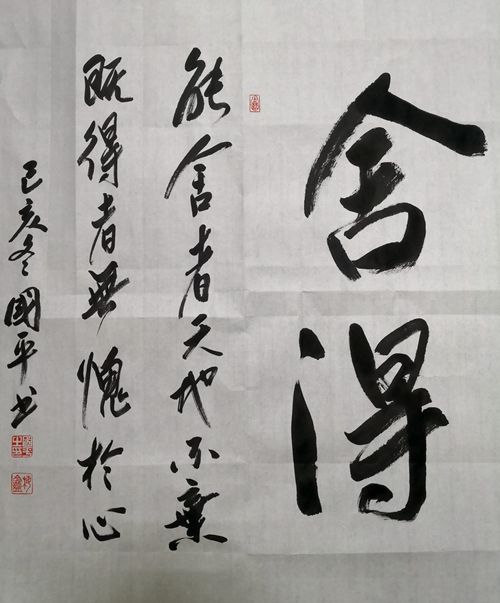 舍得
能舍者天地不棄
既得者無愧於心
己亥冬國平书